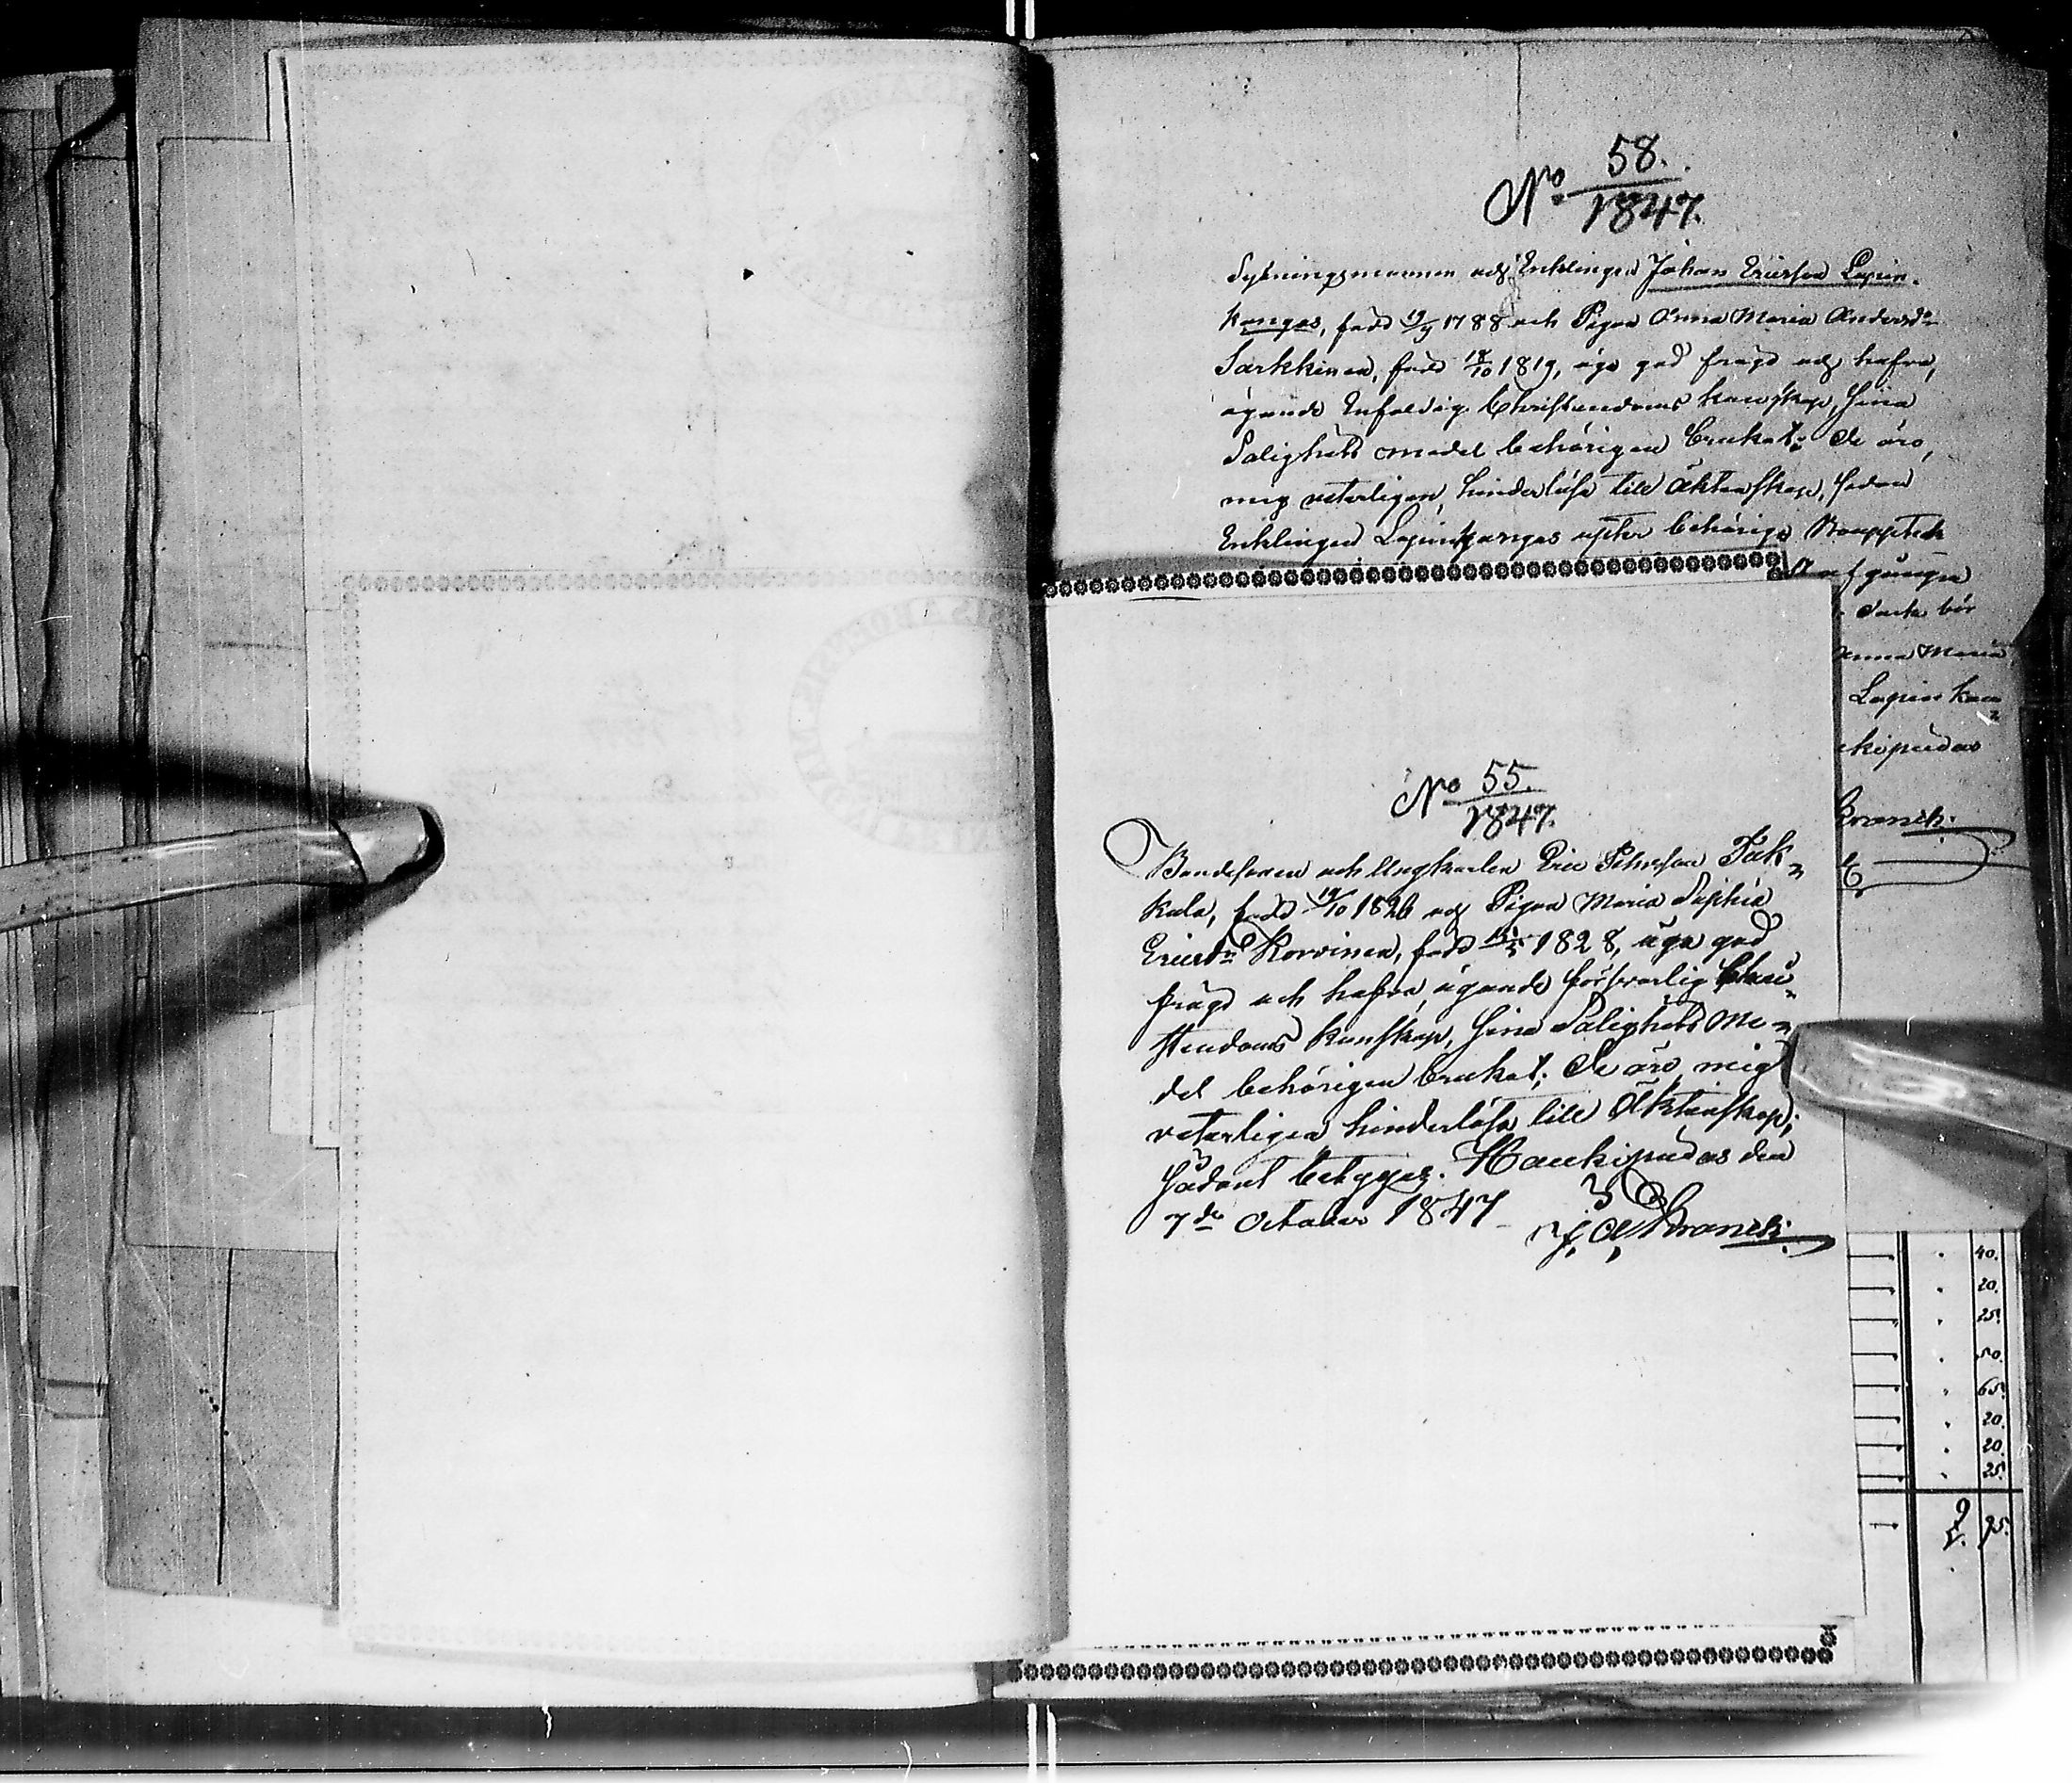 No 58.
1847.
Sytningsmannen och Enklingen Johan Ericsson Lapin-
kangas, född 19/9 1788 och Pigan Anna Maria Andersdr
Sarkkinen, född 18/10 1819, äga god frägd och hafva,
ägande Enfaldig Christendoms kunskap, sina
Salighets medel behörigen brukat; De äro,
mig veterligen, hinderlösa till äktenskap, sedan
Enklingen Lapinkangas efter behörig Bouppteck
afgången
bör
Anna Maria
Lapin kan
ukipudas
Kranck.
No 55.
1847.
Bondesonen och Ungkarlen Eric Pehrsson Jak-
kula, född 19/10 1826 och Pigan Maria Sophia
Ericsdr Korvinen, född 1828, äga god
frägd och hafva, ägande försvarlig Chri-
stendoms kunskap, sina Salighets me-
del behörigen brukat; De äro mig
veterligen hinderlösa till Äktenskap;
Sådant betygas. Haukipudas den
7de October 1847
J. A. Kranck.
40.
20.
25.
50.
65.
20.
20.
25.
95.